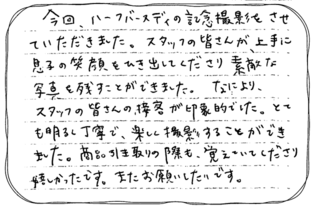 今回、ハーフバースディの記念撮影をさせ
ていただきました。スタッフの皆さんが上手に
息子の笑顔をひき出してくださり素敵な
写真を残すことができました。なにより、
スタッフの皆さんの接客が印象的でした。とて
も明るく丁寧で、楽しく撮影することができ
ました。商品引き取りの際も、覚えていてくださり
嬉しかったです。またお願いしたいです。